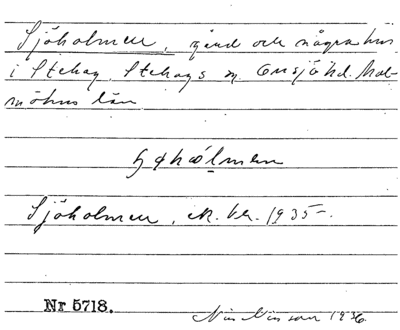 Sjöholmen, gård och några hus
i Stehag, Stehags sn, Onsjö hd. Mal-
möhus län
Sjöholmen, 1935.
Nr 5718.
Nils Nilsson 1936.